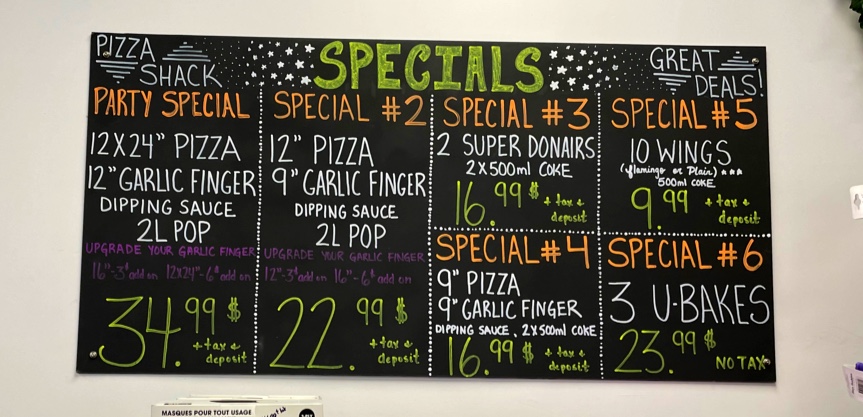 PIZZA SHACK
SPECIALS
GREAT DEALS!
PARTY SPECIAL
12X24" PIZZA
12" GARLIC FINGER
DIPPING SAUCE
2L POP
UPGRADE YOUR GARLIC FINGER
16"-3$ add on 12x24"-6$ add on
34.99$
+ tax +
deposit
SPECIAL #2
12" PIZZA
9" GARLIC FINGER
DIPPING SAUCE
2L POP
UPGRADE YOUR GARLIC FINGER
12"-3$ add on 16"-6$ add on
22.99$
+ tax +
deposit
SPECIAL #3
2 SUPER DONAIRS
2X500ml COKE
16.99$
+ tax +
deposit
SPECIAL #4
9" PIZZA
9" GARLIC FINGER
DIPPING SAUCE, 2x500ml COKE
16.99$
+ tax +
deposit
SPECIAL #5
10 WINGS
(flamingo or Plain)
500ml COKE
9.99
+ tax +
deposit
SPECIAL #6
3 U-BAKES
23.99$
NO TAX
MASQUES POUR TOUT USAGE